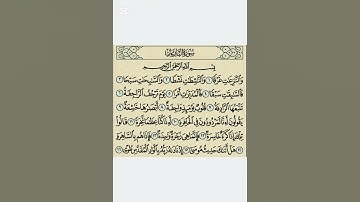 سورة النازعات
بسم الله الرحمن الرحيم
والنازعات غرقا ١ والناشطات نشطا ٢ والسابحات سبحا ٣
فالسابقات سبقا ٤ فالمدبرات أمرا ٥ يوم ترجف الراجفة ٦
تتبعها الرادفة ٧ قلوب يومئذ واجفة ٨ أبصارها خاشعة ٩
يقولون أءنا لمردودون في الحافرة ١٠ أءذا كنا عظاما نخرة ١١ قالوا
تلك إذا كرة خاسرة ١٢ فإنما هي زجرة واحدة ١٣ فإذا هم بالساهرة
١٤ هل أتاك حديث موسى ١٥ إذ ناداه ربه بالواد المقدس طوى ١٦